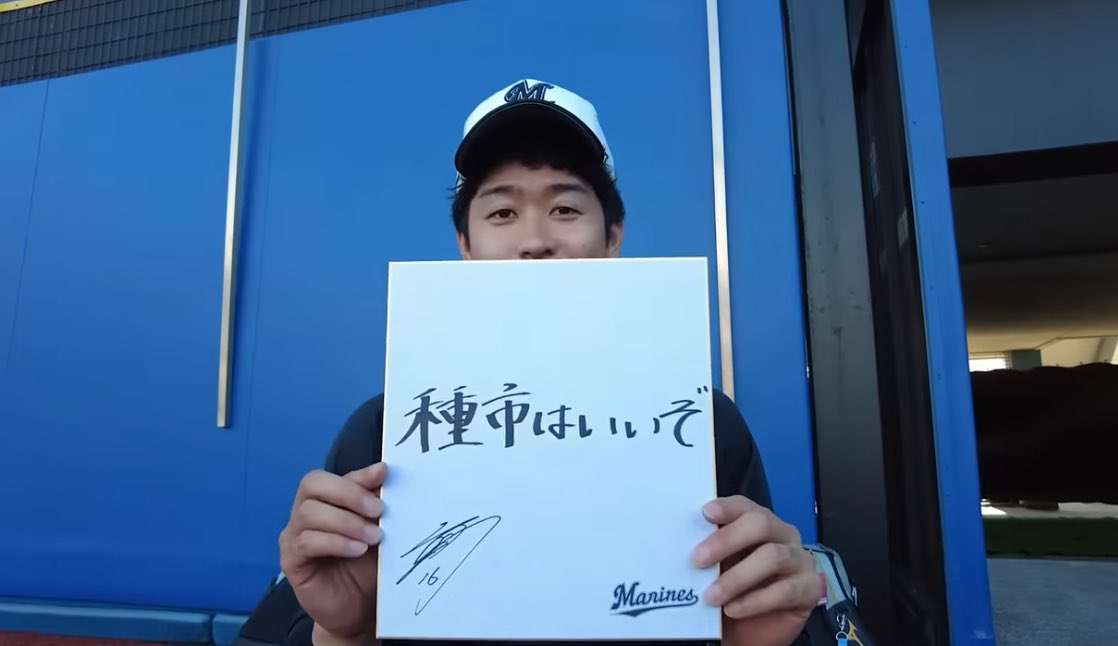 M
種市はいいぞ
16
Marines